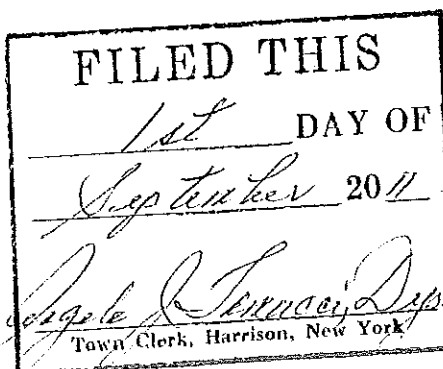 FILED THIS
1st DAY OF
September 2011
Town Clerk, Harrison, New York